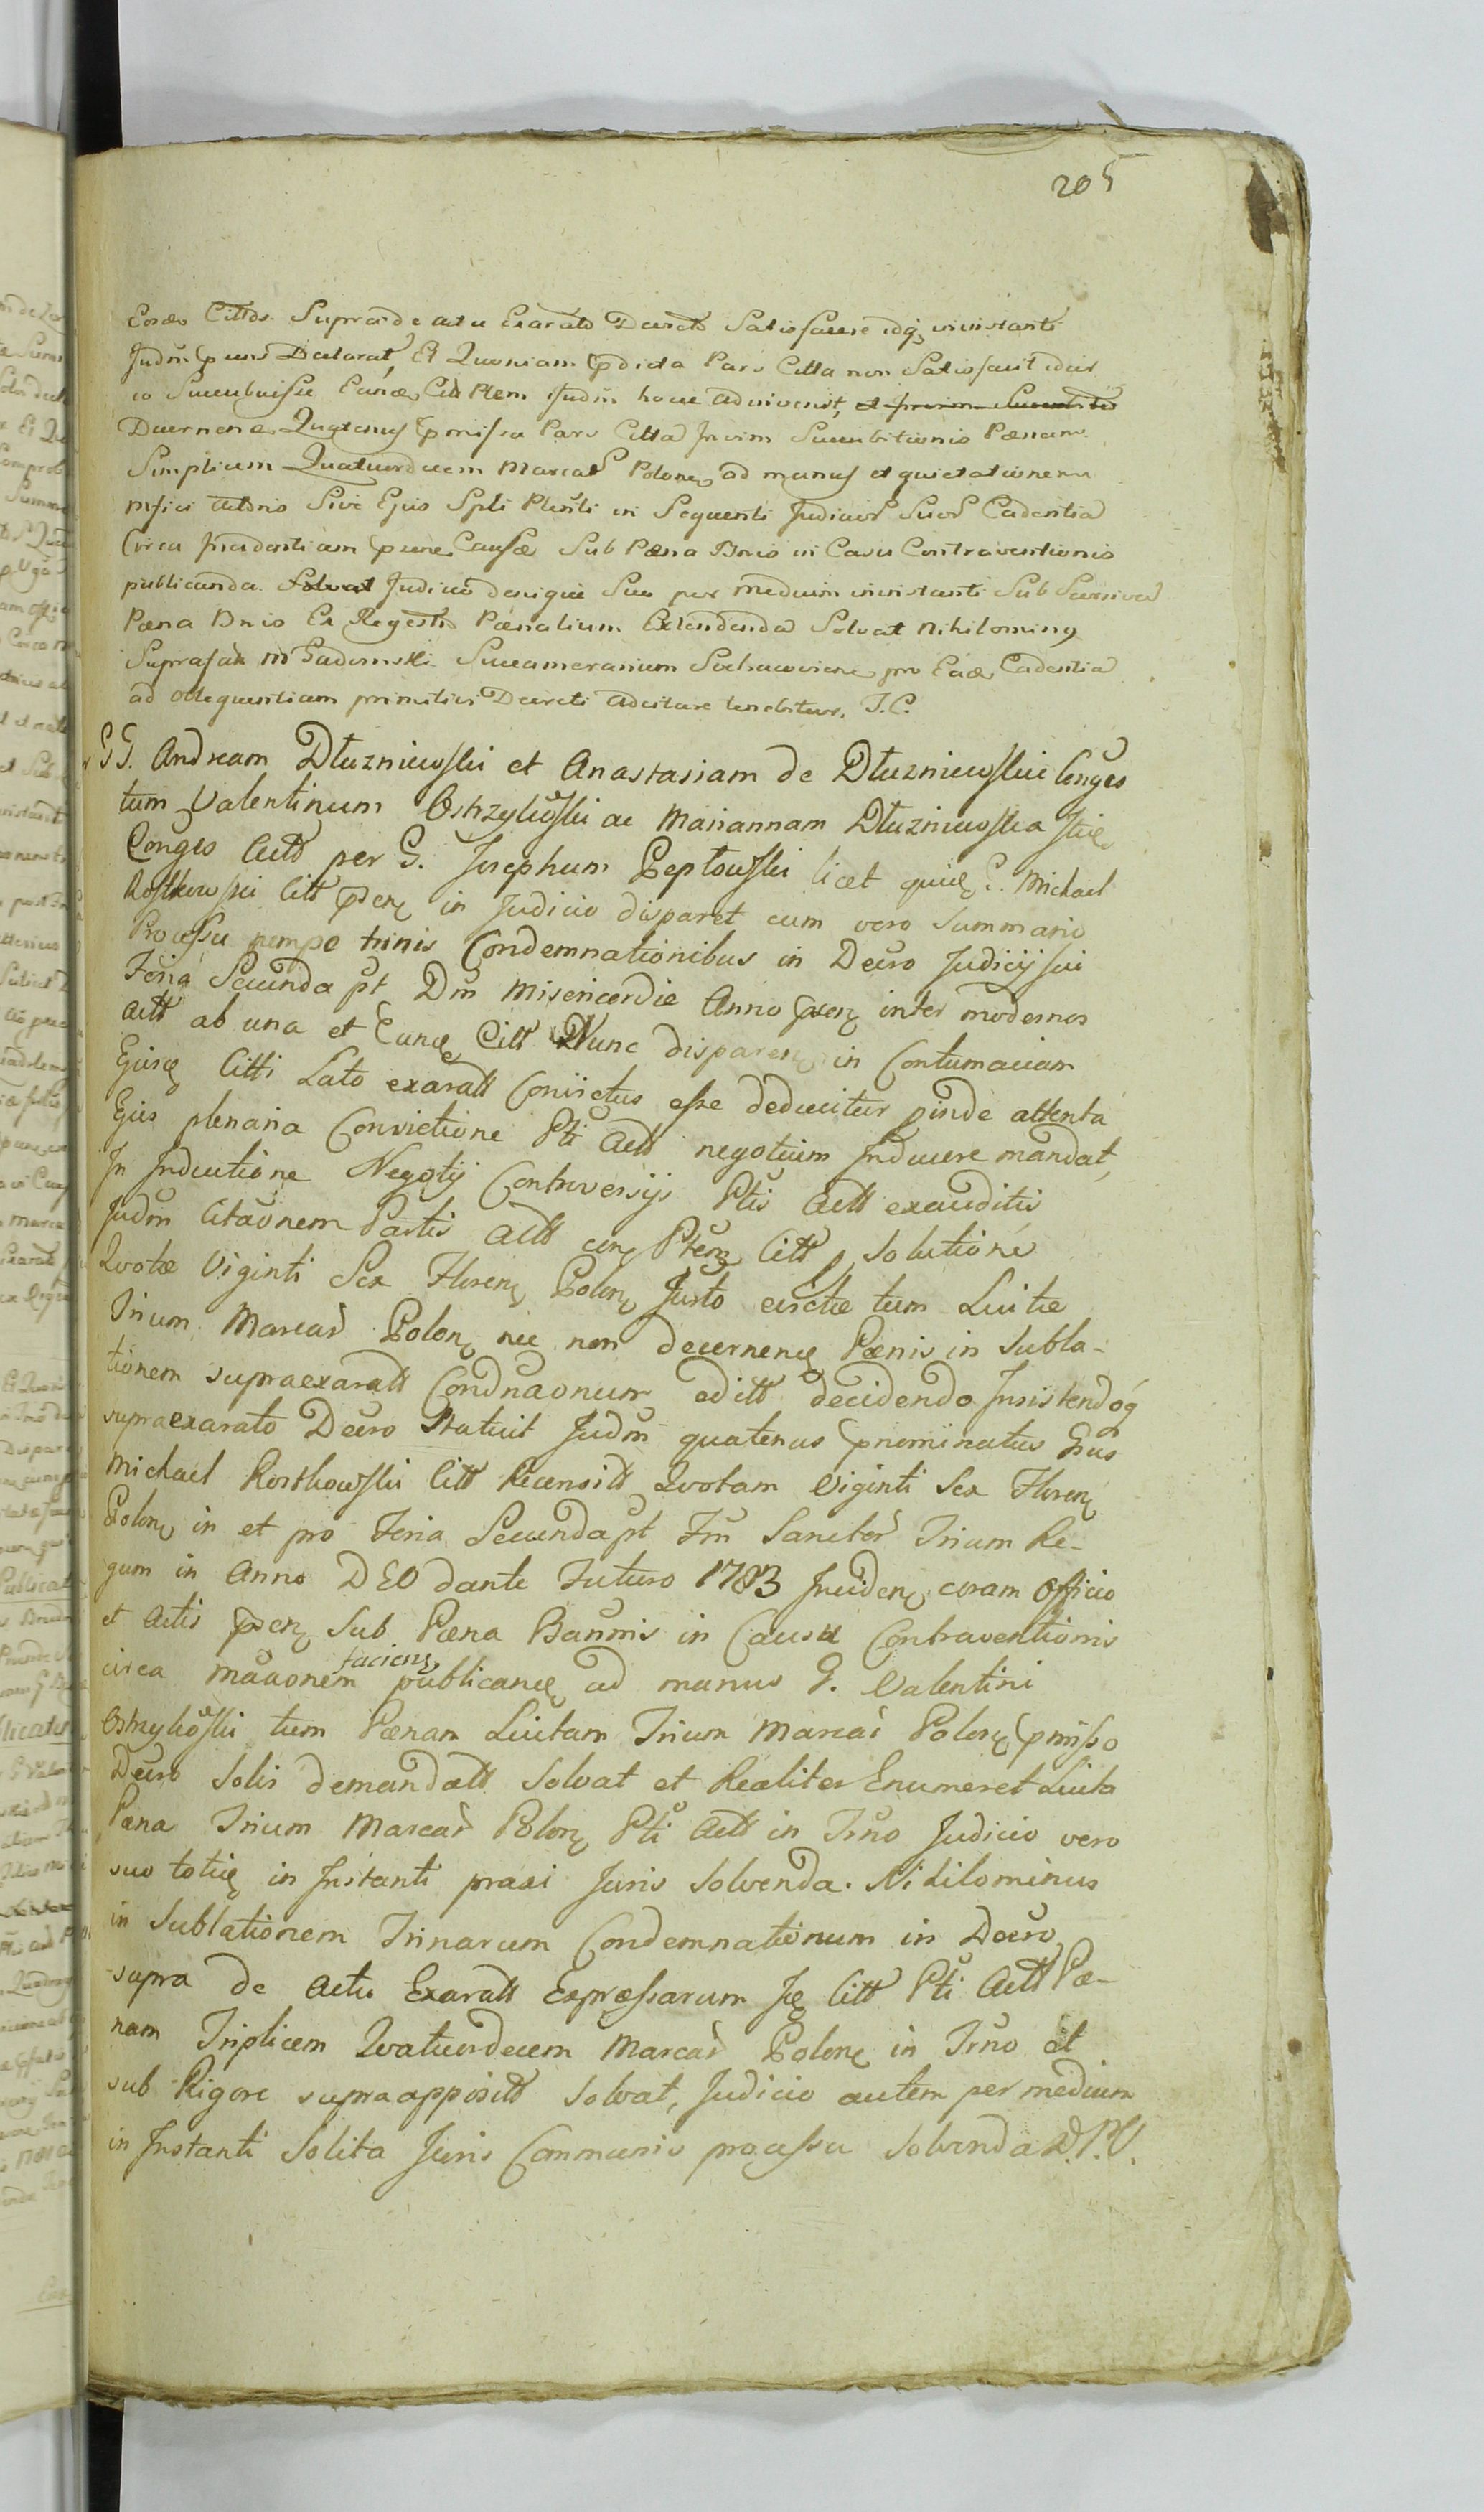 205
Eosdem Cittos. Supra de actu Exarato Decreto Satisfacere idq in instanti
Judm pnns Declarat, Et Quoniam pdicta Pars Citta non Satisfacit idcir
co Succubuisse Eandem Citt Ptem Judm hocce adinvenit,
Decernendo Quatenus pmissa Pars Citta In vim Succubitionis Pœnam
Simplicem Quatuordecem Marcar Polon ad manus et quietationem
Mfici Actoris Sive Ejus Spli Plenti in Sequenti Judicior Suor Cadentia
Circa Incidentiam pnne Causæ Sub Pœna Bnis in Casu Contraventionis
publicanda. Solvat Judicio denique Suo per medium in instanti Sub Successiva
Pœna Bnis Ex Regestro Pœnalium Extendenda Solvat Nihilominus
Suprafat M Gadomski Succamerarium Sochacovien pro Eade Cadentia
ad obloquentiam primitivi Decreti adcitare tenebitur. I.C.
GG. Andream Dłuzniewski et Anastasiam de Dłuzniewskie Conges
tum Valentinum Ostrzykoski ac Mariannam Dłuzniewska
Conges Actt per G. Josephum Peptowski licet G. Michael
Rostkowski Citt psen in Judicio disparet cum vero Summario
Processu nempe trinis Condemnationibus in Decro Judicij sui
Feria Secunda pt Dm Misericordie Anno psen inter modernos
Actt ab una et Eund Citt Nunc disparen in Contumaciam
Ejusd Citti Lato exaratt Convictus esse deducitur pinde attenta
Ejus plenaria Convictione Pti Actt negotium Inducere mandat,
In Inductione Negotij Controversijs Ptis Actt exauditis
Judm Citaonem Partis Actt cen Ptem Citt p solutione
Quotæ Viginti Sex Floren Polon Justo evictæ tum Luitæ
Trium Marcar Polon nec non decernend Pœnis in Subla-
tionem supraexaratt Condnaonum editt decidendo Insistendoq
supraexarato Decro Statuit Judm quatenus pnominatus Gus
Michael Rostkowski Citt Recensitt Quotam Viginti Sex Floren
Polon in et pro Feria Secunda pt Fm Sanctor Trium Re-
gum in Anno DEO dante Futuro 1783 Inciden coram Officio
et Actis psen sub Pœna Bannis in Causa Contraventionis
circa maaonem faciens publicand ad manus G. Valentini
Ostrzykoski tum Pœnam Luitam Trium Marcar Polon pmisso
Decro Solis demandatt Solvat et Realiter Enumeret Luita
Pœna Trium Marcar Polon Pti Actt in Trno Judicio vero
suo totid in Instanti praxi Juris Solvenda. Nihilominus
in Sublationem Trinarum Condemnationum in Decro
supra de Actu Exaratt Expressarum Id Citt Pti Actt Pœ-
nam Triplicem Quatuordecem Marcar Polon in Trno et
sub Rigore supra appositt Solvat, Judicio autem per medium
in Instanti Solita Juris Communis processu Solvenda D.P.V.